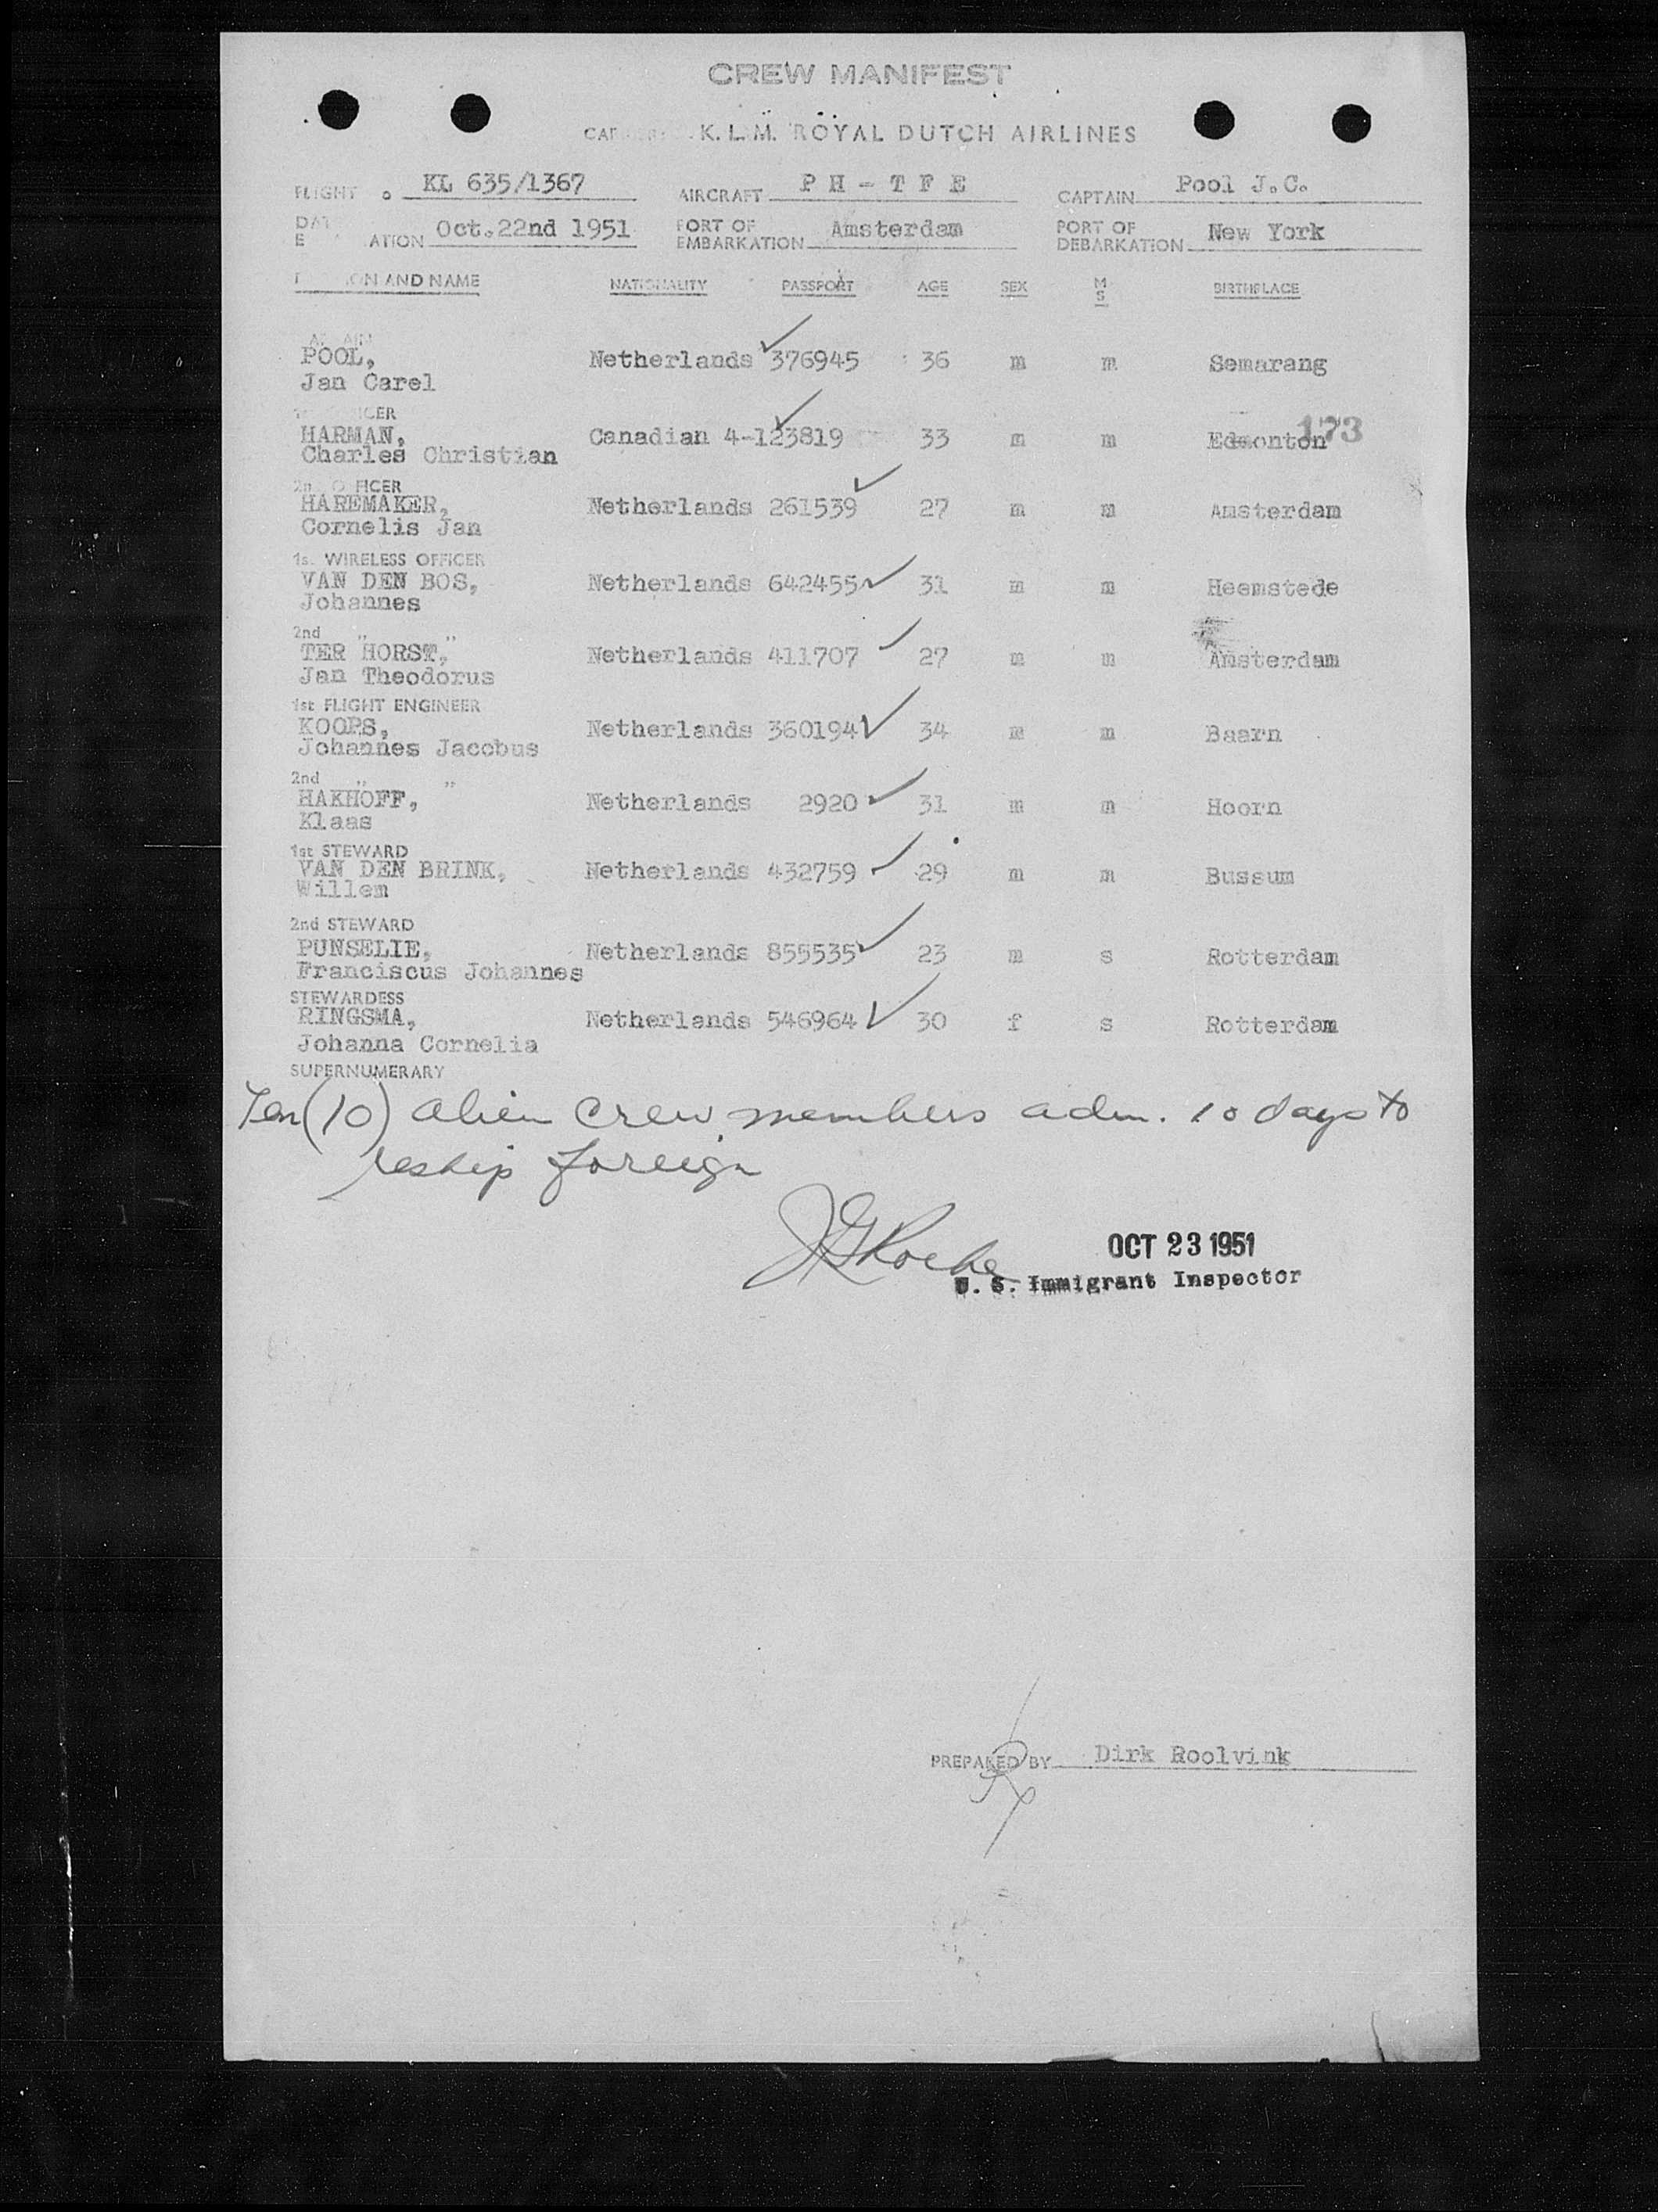 CREW MANIFEST
K. L. M. ROYAL DUTCH AIRLINES
FLIGHT KL 635/1367 AIRCRAFT PH-TFE CAPTAIN Pool J.C.
Oct.22nd 1951 PORT OF EMBARKATION Amsterdam PORT OF DEBARKATION New York
AND NAME NATIONALITY PASSPORT AGE SEX M S BIRTHPLACE
POOL, Netherlands 376945 36 m m Semarang
Jan Carel
173
HARMAN, Canadian 4-123819 33 m m Edmonton
Charles Christian
HAREMAKER, Netherlands 261539 27 m m Amsterdam
Cornelis Jan
1st WIRELESS OFFICER
VAN DEN BOS, Netherlands 642455 31 m m Heemstede
Johannes
2nd " "
TER HORST, Netherlands 411707 27 m m Amsterdam
Jan Theodorus
1st FLIGHT ENGINEER
KOOPS, Netherlands 360194 34 m m Baarn
Johannes Jacobus
2nd " "
HAKHOFF, Netherlands 2920 31 m m Hoorn
Klaas
1st STEWARD
VAN DEN BRINK, Netherlands 432759 29 m m Bussum
Willem
2nd STEWARD
PUNSELIE, Netherlands 855535 23 m s Rotterdam
Franciscus Johannes
STEWARDESS
RINGSMA, Netherlands 546964 30 f s Rotterdam
Johanna Cornelia
SUPERNUMERARY
Ten (10) alien crew members adm. 10 days to
reship foreign
OCT 23 1951
U. S. Immigrant Inspector
PREPARED BY Dirk Roolvink